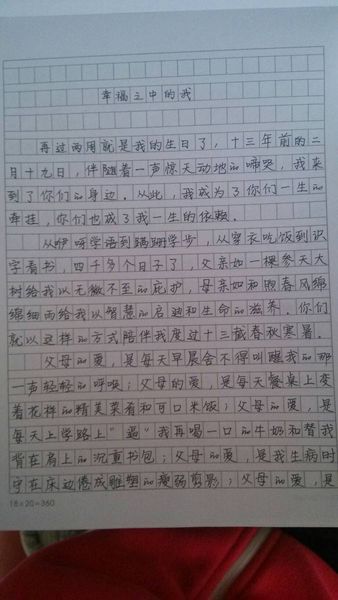 幸福之中的我
再过两周就是我的生日了，十三年前的二
月十九日，伴随着一声惊天动地的啼哭，我来
到了你们的身边。从此，我成为了你们一生的
牵挂，你们也成了我一生的依赖。
从咿呀学语到蹒跚学步，从穿衣吃饭到识
字看书，四千多个日子了，父亲如一棵参天大
树给我以无微不至的庇护，母亲如和煦春风绵
绵细雨给我以智慧的启迪和生命的滋养。你们
就以这样的方式陪伴我度过十三载春秋寒暑。
父母的爱，是每天早晨舍不得叫醒我的那
一声轻轻的呼唤；父母的爱，是每天餐桌上变
着花样的精美菜肴和可口米饭；父母的爱，是
每天上学路上“逼”我再喝一口的牛奶和替我
背在肩上的沉重书包；父母的爱，是我生病时
守在床边倦成雕塑的瘦弱剪影；父母的爱，是
18×20=360